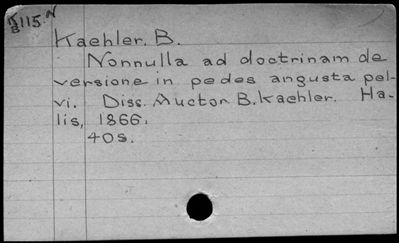 B115.N
Kaehler, B.
Nonnulla ad doctrinam de
versione in pedes angusta pel-
vi. Diss. Auctor B. Kaehler. Ha-
lis, 1866.
40s.